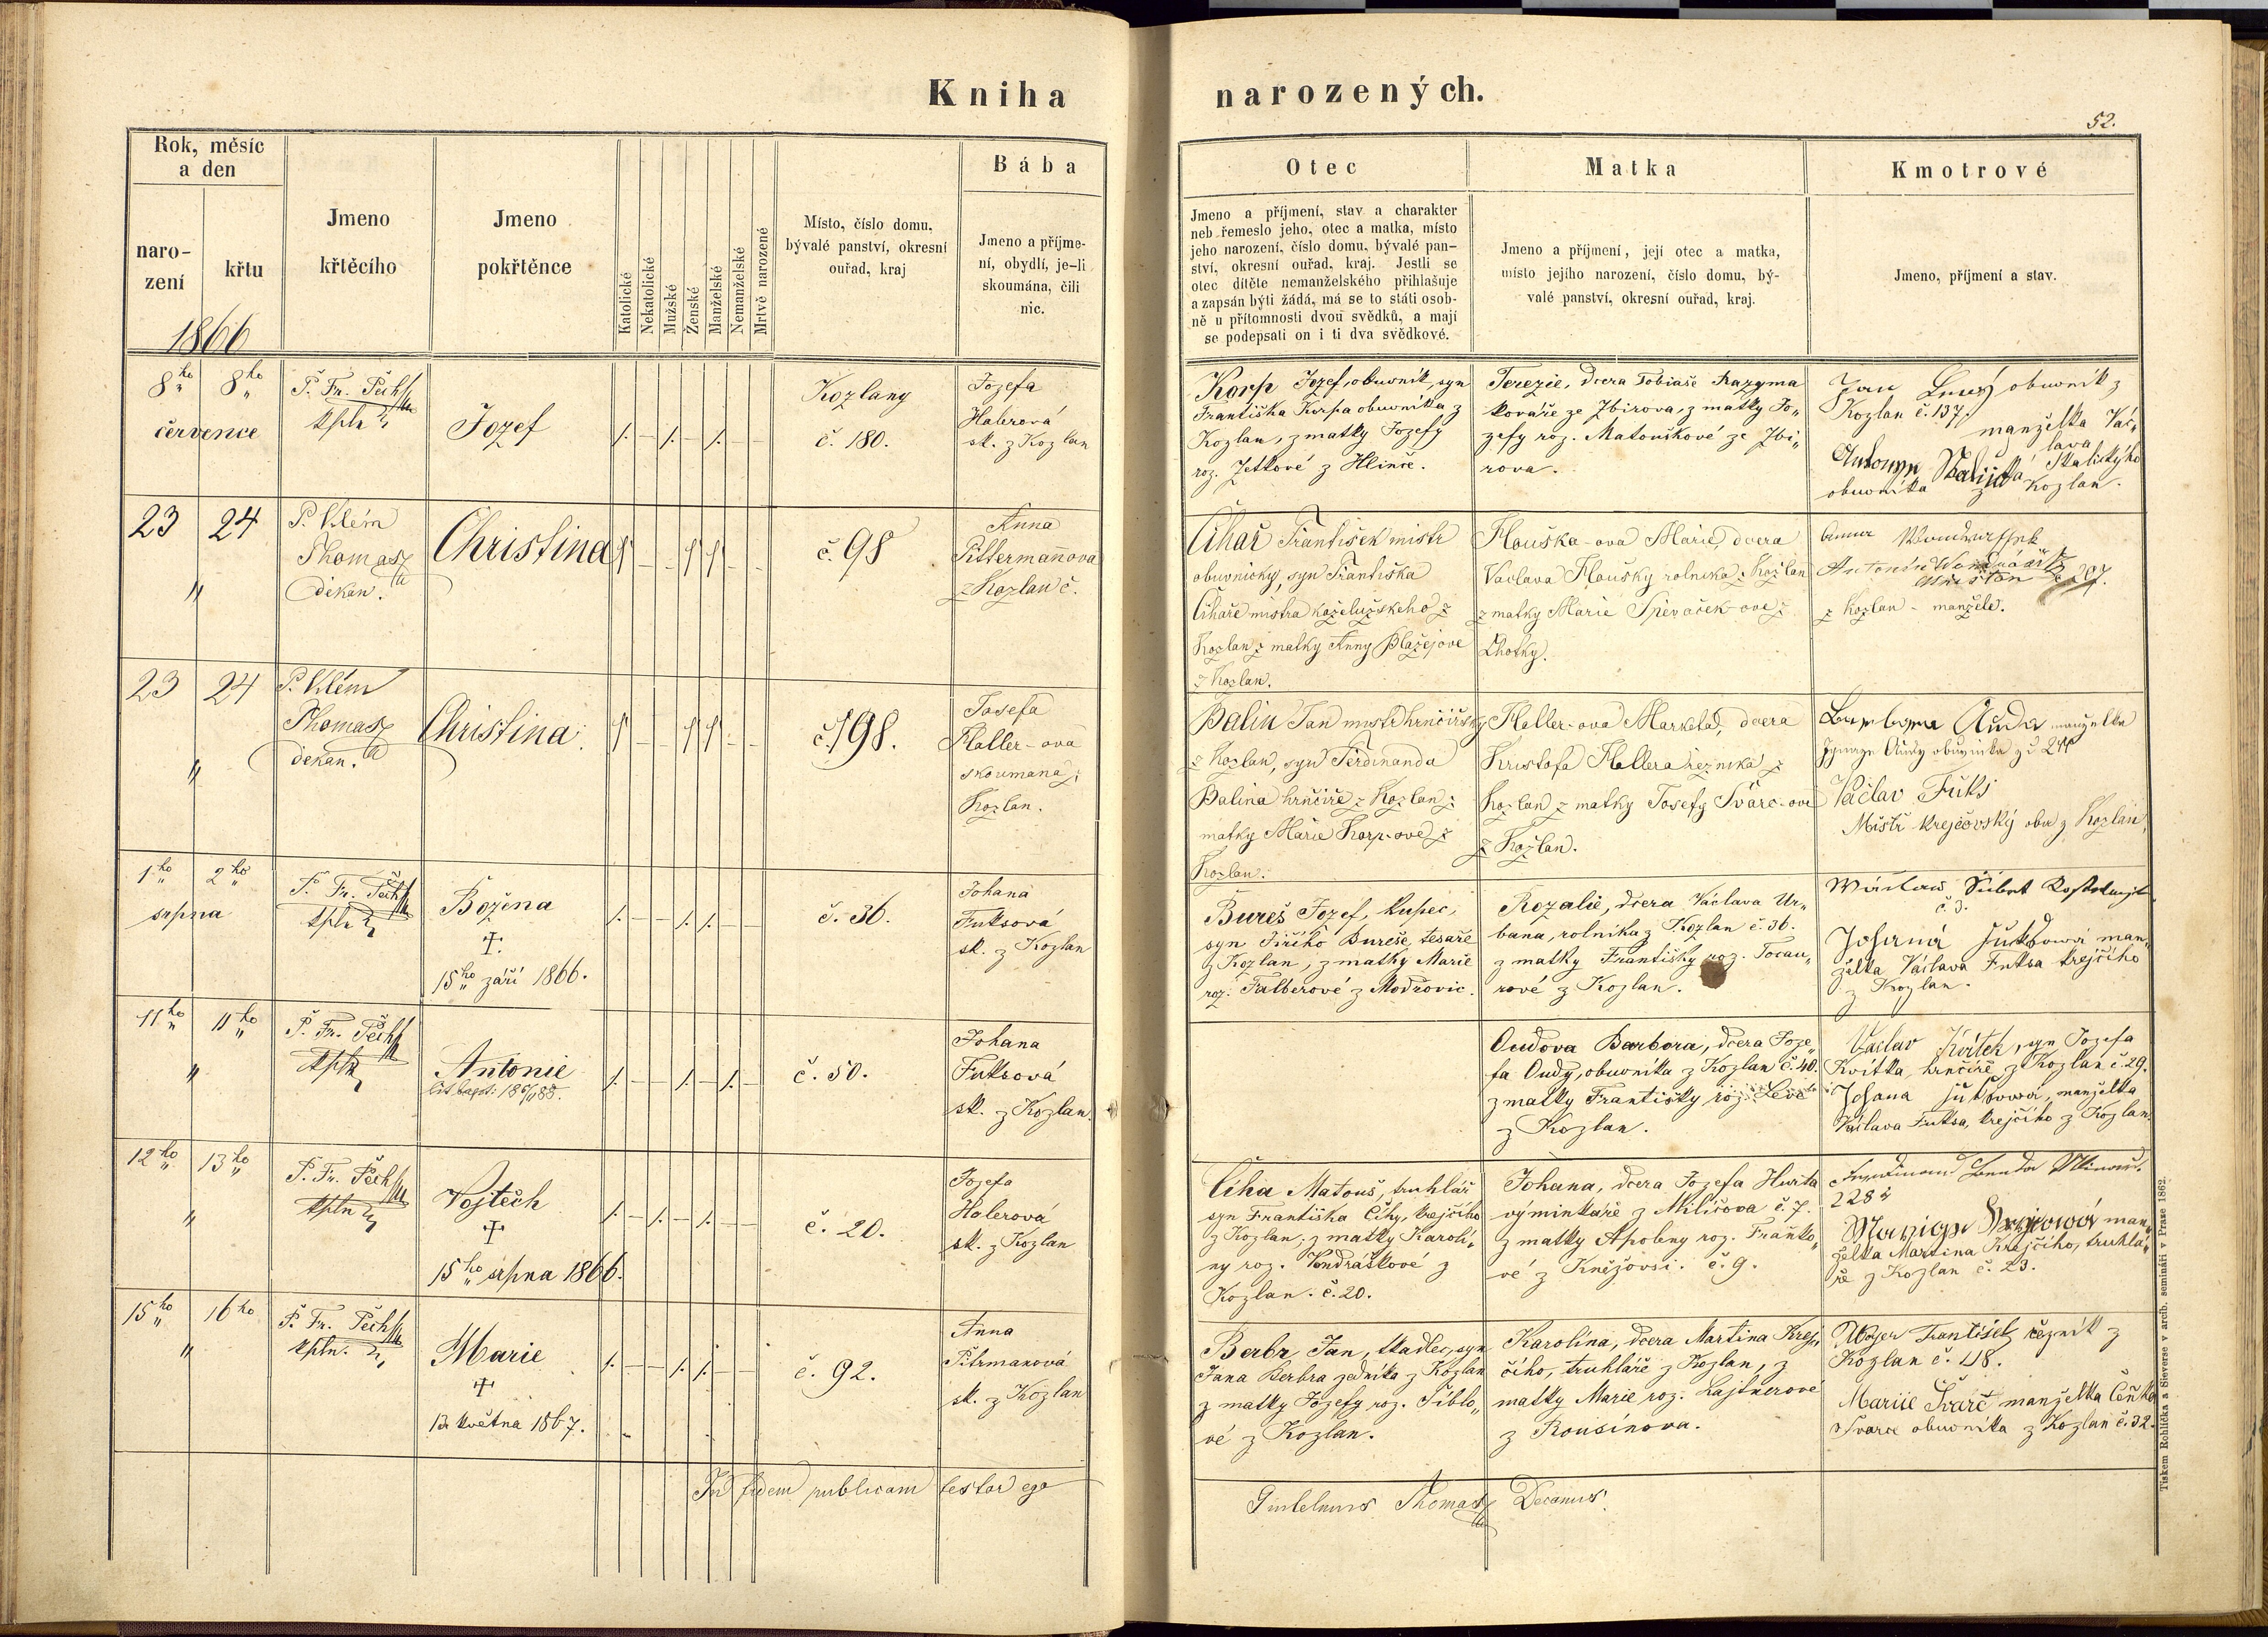 Kniha narozených.
52.
Rok, měsíc
a den
naro-
zení
křtu
1866
Jmeno
křtěcího
Jmeno
pokřtěnce
Katolické
Nekatolické
Mužské
Ženské
Manželské
Nemanželské
Mrtvě narozené
Místo, číslo domu,
bývalé panství, okresní
ouřad, kraj
Bába
Jmeno a příjme-
ní, obydlí, je-li
skoumána, čili
nic.
Otec
Jmeno a příjmení, stav a charakter
neb řemeslo jeho, otec a matka, místo
jeho narození, číslo domu, bývalé pan-
ství, okresní ouřad, kraj. Jestli se
otec dítěte nemanželského přihlašuje
a zapsán býti žádá, má se to státi osob-
ně u přítomnosti dvou svědků, a mají
se podepsati on i ti dva svědkové.
Matka
Jmeno a příjmení, její otec a matka,
místo jejího narození, číslo domu, bý-
valé panství, okresní ouřad, kraj.
Kmotrové
Jmeno, příjmení a stav.
8ho 8ho
července
P. Fr. Pech
kpln
Jozef
Kozlany
č. 180.
Jozefa
Halerová
sk. z Kozlan
Korp Jozef, obuwník, syn
Františka Korpa obuwníka z
Kozlan, z matky Jozefy
roz. Zetkové z Hlinče.
Terezie, dcera Tobiaše Kazyma
kováře ze Zbirova, z matky Jo„
zefy roz. Matouškové ze Zbi„
rova.
Jan obuwník z
Kozlan č. 137.
manželka Vác„
lava
Antonyn Skalická Skalickýho
obuwníka z Kozlan.
23 24
„
P. Vilém
Thomasz
děkan.
Christina
č. 98
Anna
Pittermannova
z Kozlan č.
Čihař František mistr
obuvnický, syn Františka
Čihaře mistra koželužského z
Kozlan z matky Anny Blažejove
z Kozlan.
Flouška-ova Marie, dcera
Vaclava Floušky rolnika z Kozlan
z matky Marie Spěvaček-ove z
Lhotky.
Antonín
č. 207.
z Kozlan - manžele.
23 24
„
P. Vilém
Thomasz
děkan.
Christina
č. 198.
Josefa
Haller-ova
skoumana z
Kozlan.
Balin Jan mistr hrnčířský
z Kozlan, syn Ferdinanda
Balina hrnčíře z Kozlan z
matky Marie Korp-ové z
Kozlan.
Haller-ova Marketa, dcera
Kristofa Hallera řezníka z
Kozlan z matky Josefy Švarc-ove
z Kozlan.
Barbora Auda manželka
Audy obuvnika z č 244
Václav Fuks
Mistr krejčovský obu z Kozlan
1ho 2ho
srpna
P. Fr. Pech
kpln
Božena
†.
15ho září 1866.
č. 36.
Johana
Fuksová
sk. z Kozlan
Bureš Jozef, kupec,
syn Jiřího Bureše, tesaře
z Kozlan, z matky Marie
roz. Falberové z Modřovic.
Rozalie, dcera Václava Ur„
bana, rolníka z Kozlan č. 36.
z matky Františky roz. Tocau„
rové z Kozlan.
Šibrt
č. 3.
Johana Fuksowá man„
želka Václava Fuksa krejčího
z Kozlan.
11ho 11ho
„
P. Fr. Pech
kpln
Antonie
č. 50.
Johana
Fuksová
sk. z Kozlan
Oudova Barbora, dcera Joze„
fa Oudy, obuwníka z Kozlan č. 40.
z matky Františky roz.
z Kozlan.
Václav Kvítek, syn Jozefa
Kvítka, hrnčíře z Kozlan č. 29.
Johana Fuksowá, manželka
Václava Fuksa, krejčího z Kozlan.
12ho 13ho
„
P. Fr. Pech
kpln
Vojtěch
†
15ho srpna 1866.
č. 20.
Jozefa
Halerová
sk. z Kozlan
Číha Matouš, truhlář
syn Františka Číhy, krejčího
z Kozlan, z matky Karolí„
ny roz. Vondráškové z
Kozlan. č. 20.
Johana, dcera Jozefa Hurta
výminkaře z Miličova č. 7.
z matky Apoleny roz. Fraňko„
vé z Kněžovsi. č. 9.
Benda
228
man„
želka Martina Krejčího, truhlá„
ře z Kozlan č. 23.
15ho 16ho
„
P. Fr. Pech
kpln.
Marie
†
13 května 1867.
č. 92.
Anna
Pitrmanová
sk. z Kozlan
Berbr Jan, tkadlec, syn
Jana Berbra zedníka z Kozlan
z matky Jozefy roz. Šiblo„
vé z Kozlan.
Karolína, dcera Martina Krej„
čího, truhláře z Kozlan, z
matky Marie roz. Lajtnerové
z Rousínova.
František řezník z
Kozlan č. 118.
Mariie Švarč manželka Čeňka
Švarce obuwníka z Kozlan č. 32.
In fidem publicam testor ego
Thomasz Decanus.
Tiskem Rohlíčka a Sieverse v arcib. semináři v Praze 1862.